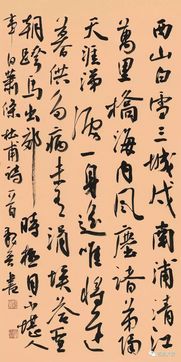 西山白雪三城戍南浦清江
萬里橋海内風塵諸弟隔
天涯涕淚一身遥唯將遲
暮供多病未有涓埃答聖
朝跨馬出郊時極目不堪人
事日蕭條 杜甫詩一首 書